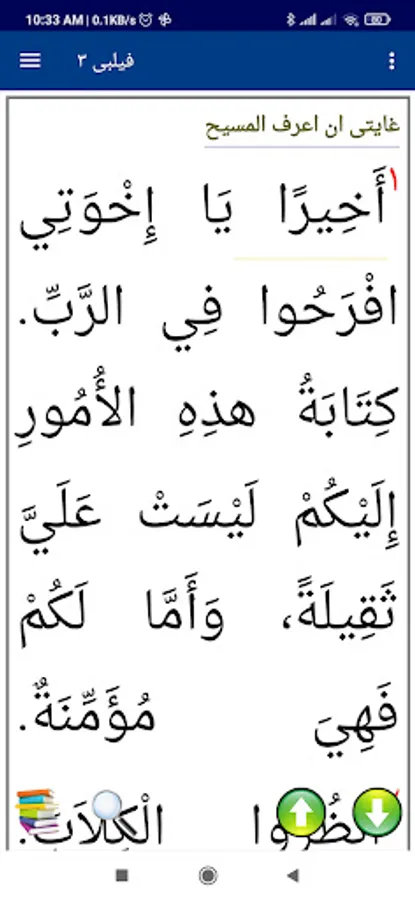 10:33 AM | 0.1KB/s
80
فيلبى ٣
غايتى ان اعرف المسيح
١ أَخِيرًا يَا إِخْوَتِي
افْرَحُوا فِي الرَّبِّ.
كِتَابَةُ هذِهِ الأُمُورِ
إِلَيْكُمْ لَيْسَتْ عَلَيَّ
ثَقِيلَةً، وَأَمَّا لَكُمْ
فَهِيَ مُؤَمِّنَةٌ.
الْكِلاَبَ.